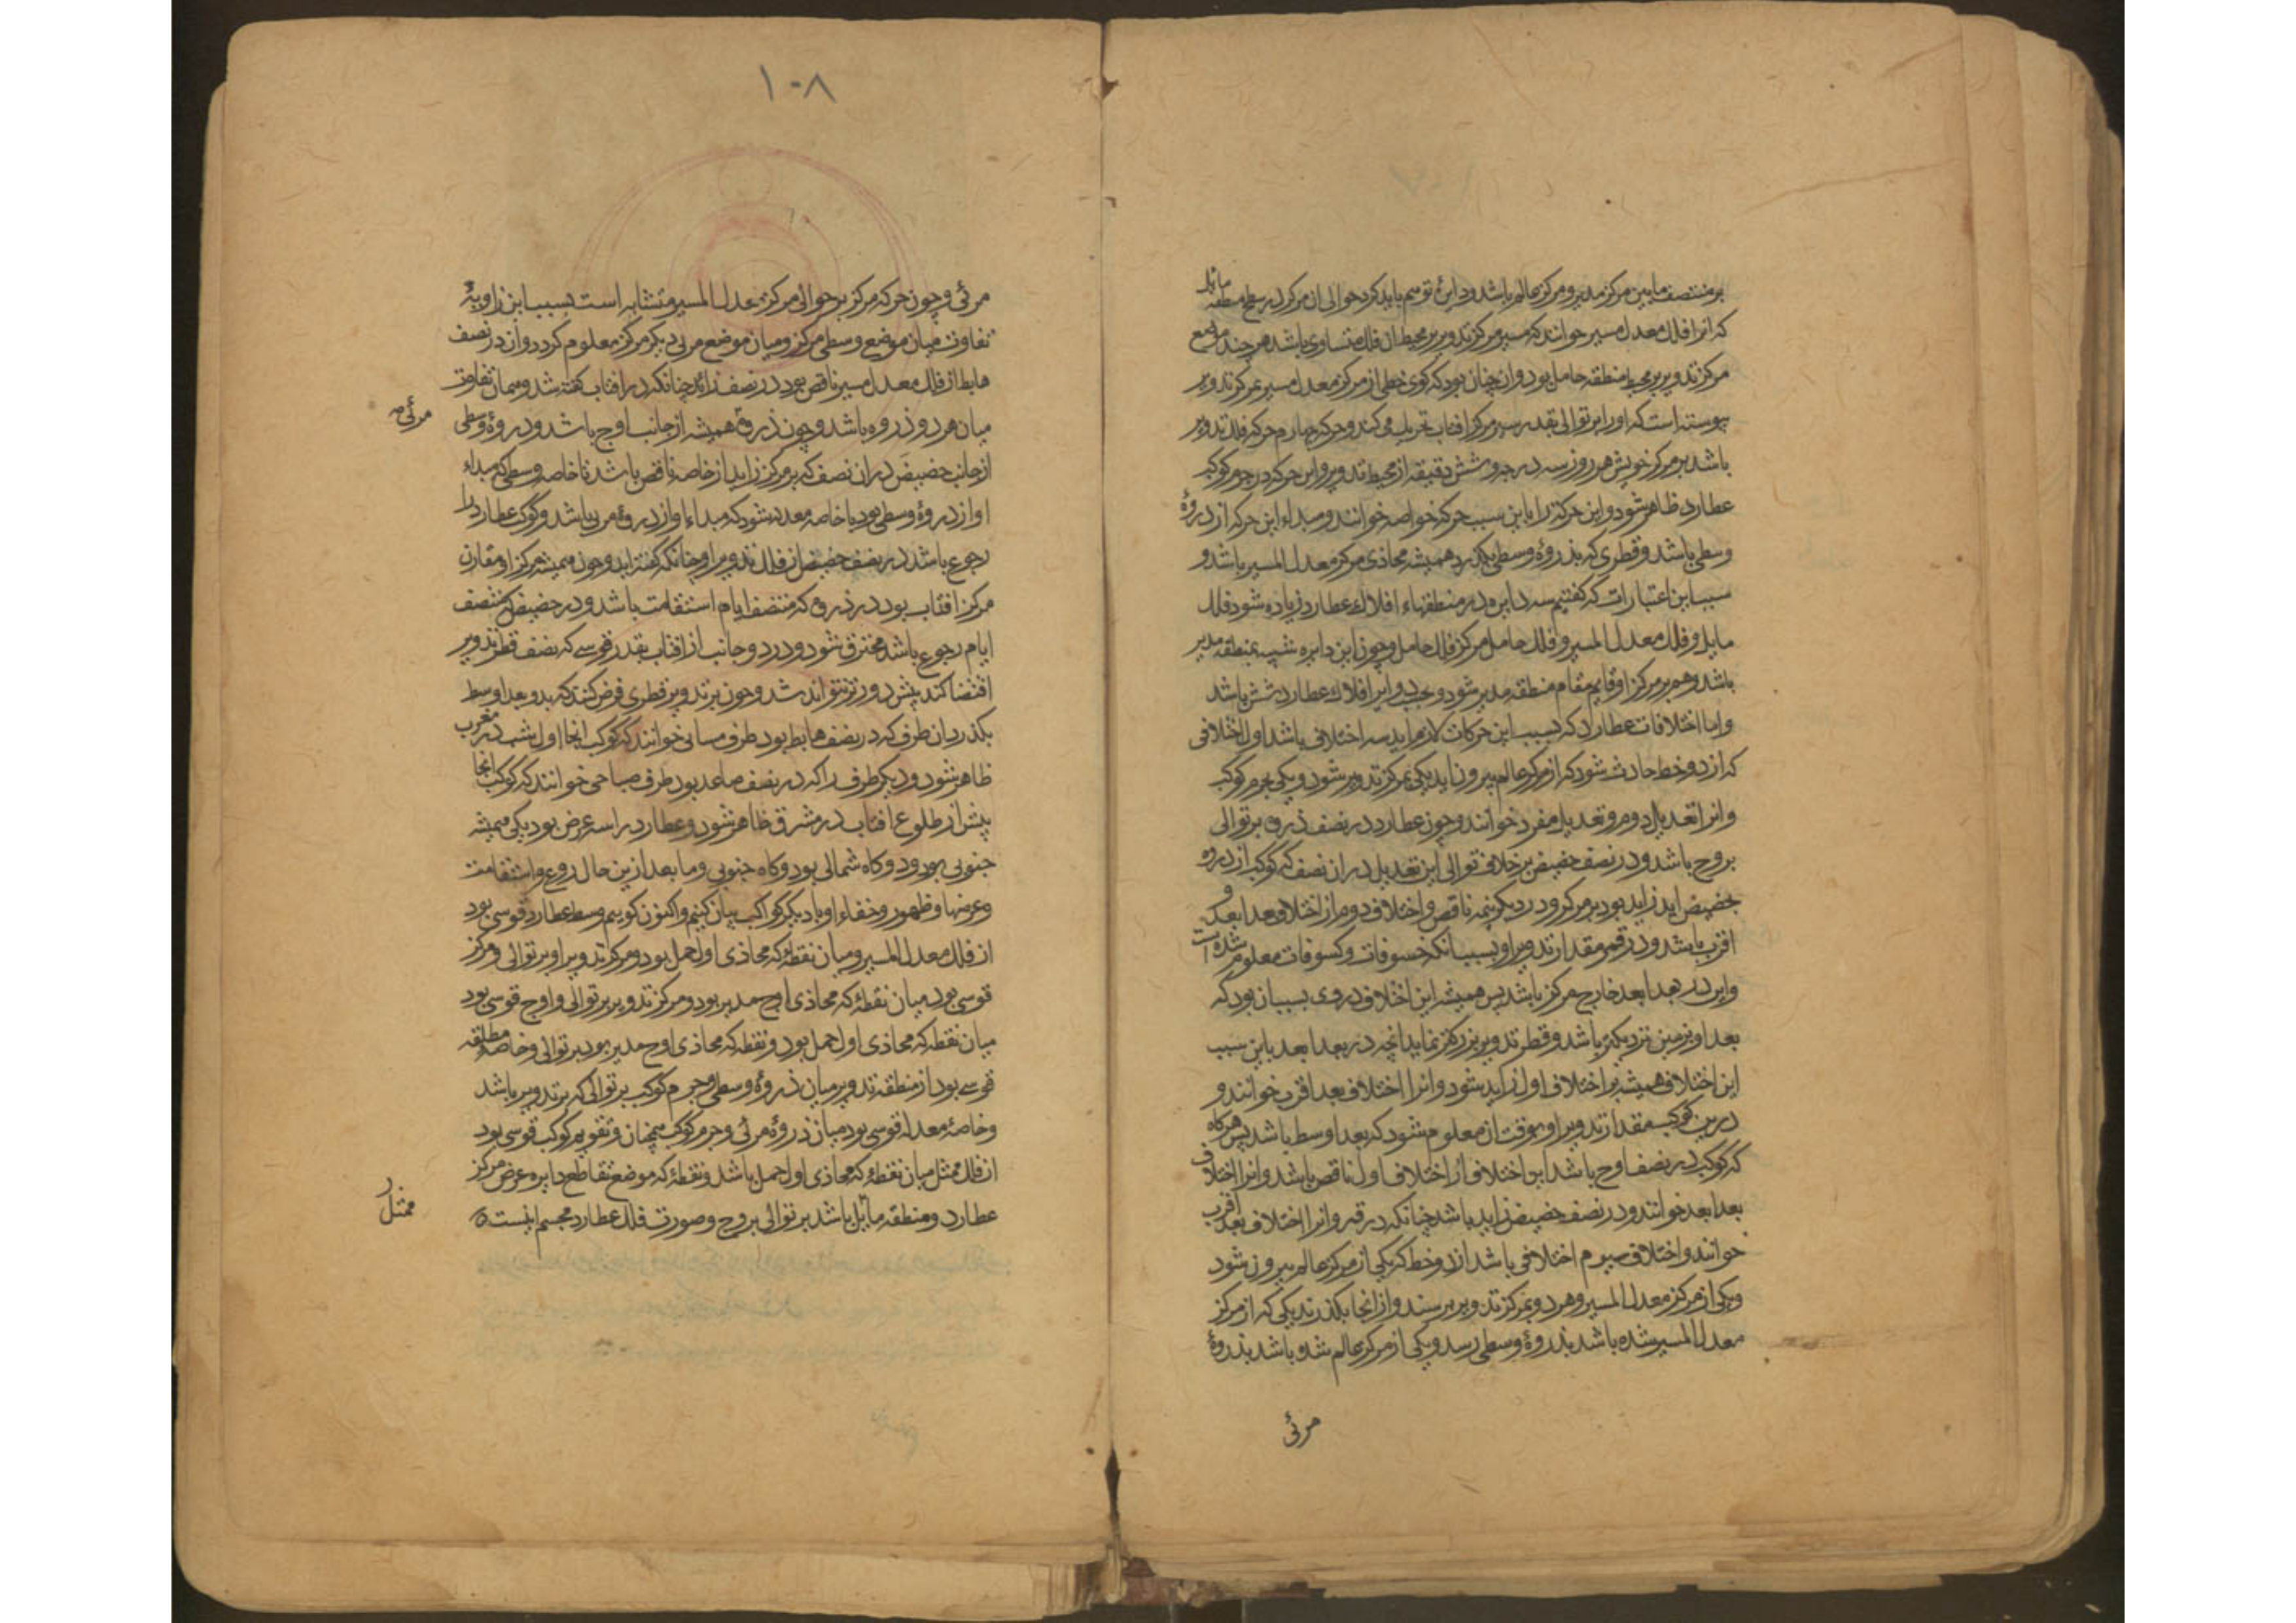 بر منتصف مابین مرکز مدیر و مرکز عالم باشد و دایرۀ توهم باید کرد حوالی ان مرکز در سطح منطقه مائل
که انرا فلك معدل مسیر خوانند که مسیر مرکز تدویر بر محیط ان فلك متساوی باشد هر چند مواضع
مرکز تدویر بر محیط منطقه حامل بود و ان چنان بود که کوی خطی از مرکز معدل مسیر بمرکز تدویر
پیوسته است که او را بر توالی بقدر سیر مرکز افتاب تحریك می کند و حرکه چهارم حرکه فلك تدویر
باشد بر مرکز خویش هر روز سه درجه و شش دقیقه از محیط تدویر و این حرکه در جرم کوکب
عطارد ظاهر شود و این حرکة را باین سبب حرکه خاصه خوانند و مبداء این حرکه از ذروۀ
وسطی باشد و قطری که بذروۀ وسطی بکذرد همیشه محاذی مرکز معدل المسیر باشد و
سبب این اعتبارات که کفتیم سه دایره در منطقهاء افلاك عطارد زیاده شود فلك
مایل و فلك معدل المسیر و فلك حامل مرکز فلك حامل و چون این دایره شبیه بمنطقه مدیر
باشد و هم بر مرکز او قایم مقام منطقه مدیر شود و بحسب دوایر افلاك عطارد شش باشد
و اما اختلافات عطارد که بسبب این حرکات لازم اید سه اختلاف باشد اول اختلافی
که از دو خط حادث شود که از مرکز عالم بیرون اید یکی بمرکز تدویر شود و یکی بجرم کوکب
و انرا تعدیل دوم و تعدیل مفرد خوانند و چون عطارد در نصف ذروه بر توالی
بروج باشد و در نصف حضیض بر خلاف توالی این تعدیل در ان نصف که کوکب از ذروه
بحضیض اید زاید بود بر مرکز و در دیکر نیمه ناقص و اختلاف دوم از اختلاف بعد ابعد و
اقرب باشد و در قمر مقدار تدویر او بسبب انکه خسوفات و کسوفات معلوم شده است
و این در بعد ابعد خارج مرکز باشد پس همیشه این اختلاف در وی بسبب ان بود که
بعد او بزمین نزدیکتر باشد و قطر تدویر بزرکتر نماید انچه در بعد ابعد باین سبب
این اختلاف همیشه بر اختلاف اول زاید شود و انرا اختلاف بعد اقرب خوانند و
درین کوکب مقدار تدویر او بوقت ان معلوم شود که بعد اوسط باشد پس هرکاه
که کوکب در نصف اوج باشد این اختلاف از اختلاف اول ناقص باشد و انرا اختلاف
بعد ابعد خوانند و در نصف حضیض زاید باشد چنانکه در قمر و انرا اختلاف بعد اقرب
خوانند و اختلاف سیوم اختلافی باشد از دو خط که یکی از مرکز عالم بیرون شود
و یکی از مرکز معدل المسیر و هر دو بمرکز تدویر برسند و از انجا بکذرند یکی که از مرکز
معدل المسیر شده باشد بذروۀ وسطی رسد و یکی از مرکز عالم شده باشد بذروۀ
مرئی
۱۰۸
مرئی و چون حرکه مرکز بر حوالی مرکز معدل المسیر متشابه است بسبب این زاویۀ
تفاوت میان موضع وسطی مرکز و میان موضع مرئی دیکر مرکز معلوم کردد و ان در نصف
هابط از فلك معدل مسیر ناقص بود در نصف زائد چنانکه در افتاب کفته شد و همان تفاوت
میان هر دو ذروه باشد و چون ذروۀ همیشه از جانب اوج باشد و ذروۀ وسطی
مرئی
از جانب حضیض در ان نصف که بر مرکز زاید از خاصه ناقص باشد تا خاصه وسطی که مبداء
او از ذروۀ وسطی بود با خاصه معدله شود که مبداء او از ذروۀ مرئی باشد و کوکب عطارد را
رجوع باشد در نصف حضیض از فلك تدویر او چنانکه کفته اید و چون همیشه مرکز او مقارن
مرکز افتاب بود در ذروه که منتصف ایام استقامت باشد و در حضیض که منتصف
ایام رجوع باشد محترق شود و در دو جانب از افتاب بقدر قوسی که نصف قطر تدویر
اقتضا کند بیش دورتر نتواند شد و چون بر تدویر قطری فرض کنند که بدو بعد اوسط
بکذرد ان طرف که در نصف هابط بود طرف مسائی خوانند که کوکب انجا اول شب در مغرب
ظاهر شود و دیکر طرف را که در نصف صاعد بود طرف صباحی خوانند که کوکب انجا
پیش از طلوع افتاب در مشرق ظاهر شود و عطارد را سه عرض بود یکی همیشه
جنوبی بود و دو کاه شمالی بود و کاه جنوبی و ما بعد ازین حال رجوع و استقامت
و عرضها و ظهور و خفاء او با دیکر کواکب بیان کنیم و اکنون کوییم وسط عطارد قوسی بود
از فلك معدل المسیر و میان نقطۀ که محاذی اول حمل بود و مرکز تدویر او بر توالی و مرکز
قوسی بود میان نقطۀ که محاذی اوج مدیر بود و مرکز تدویر بر توالی و اوج قوسی بود
میان نقطه که محاذی اول حمل بود و نقطه که محاذی اوج مدیر بود بر توالی و خاصه مطلقه
قوسی بود از منطقه تدویر میان ذروۀ وسطی و جرم کوکب بر توالی که بر تدویر باشد
و خاصۀ معدله قوسی بود میان ذروۀ مرئی و جرم کوکب همچنان و تقویم کوکب قوسی بود
از فلك ممثل میان نقطۀ که محاذی اول حمل باشد و نقطۀ که موضع تقاطع دایره عرض مرکز
عطارد و منطقه مائل باشد بر توالی بروج و صورت فلك عطارد مجسم اینست
ممثل